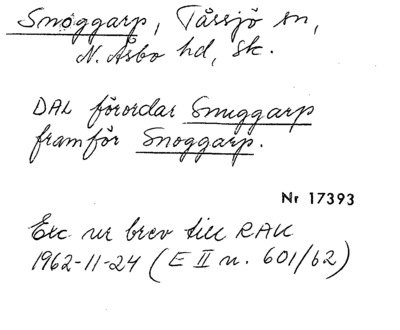 Snöggarp, Tåssjö sn,
N. Åsbo hd, Sk.
DAL förordar Snuggarp
framför Snoggarp.
Nr 17393
Exc ur brev till RAK
1962-11-24 (E II n. 601/62)